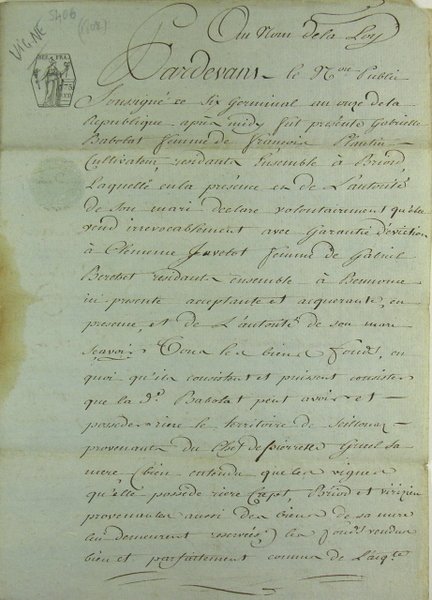 VIGNE 5406
(102)
REP. FRA.
Au Nom de la Loy
Pardevant le Nore Public
Soussigné ce Six Germinal an onze de la
Republique après midy fut presente Gabrielle
Babolat femme de francois Plantin
Cultivateur residants Ensemble à Briord
Laquelle en la présence et de L'autorité
de son mari declare volontairement qu'elle
vend irrevocablement avec Garantie d'eviction
à Clemence Juvetot femme de Gabriel
Berchet residants ensemble à Benonce
ici presente acceptante et acquerante, en
presence et de L'autorité de son mari
Sçavoir Tous les biens fonds, en
quoi qu'ils consistent et puissent consister
que la de. Babolat peut avoir et
posseder riere le territoire de
provenants du Chef de pierrette sa
mere (bien entendu que les vignes
qu'elle possede riere Crept, Briord et
provenantes aussi des biens de sa mere
lui demeurent reservées) les fonds vendus
bien et parfaitement connus de L'acqte